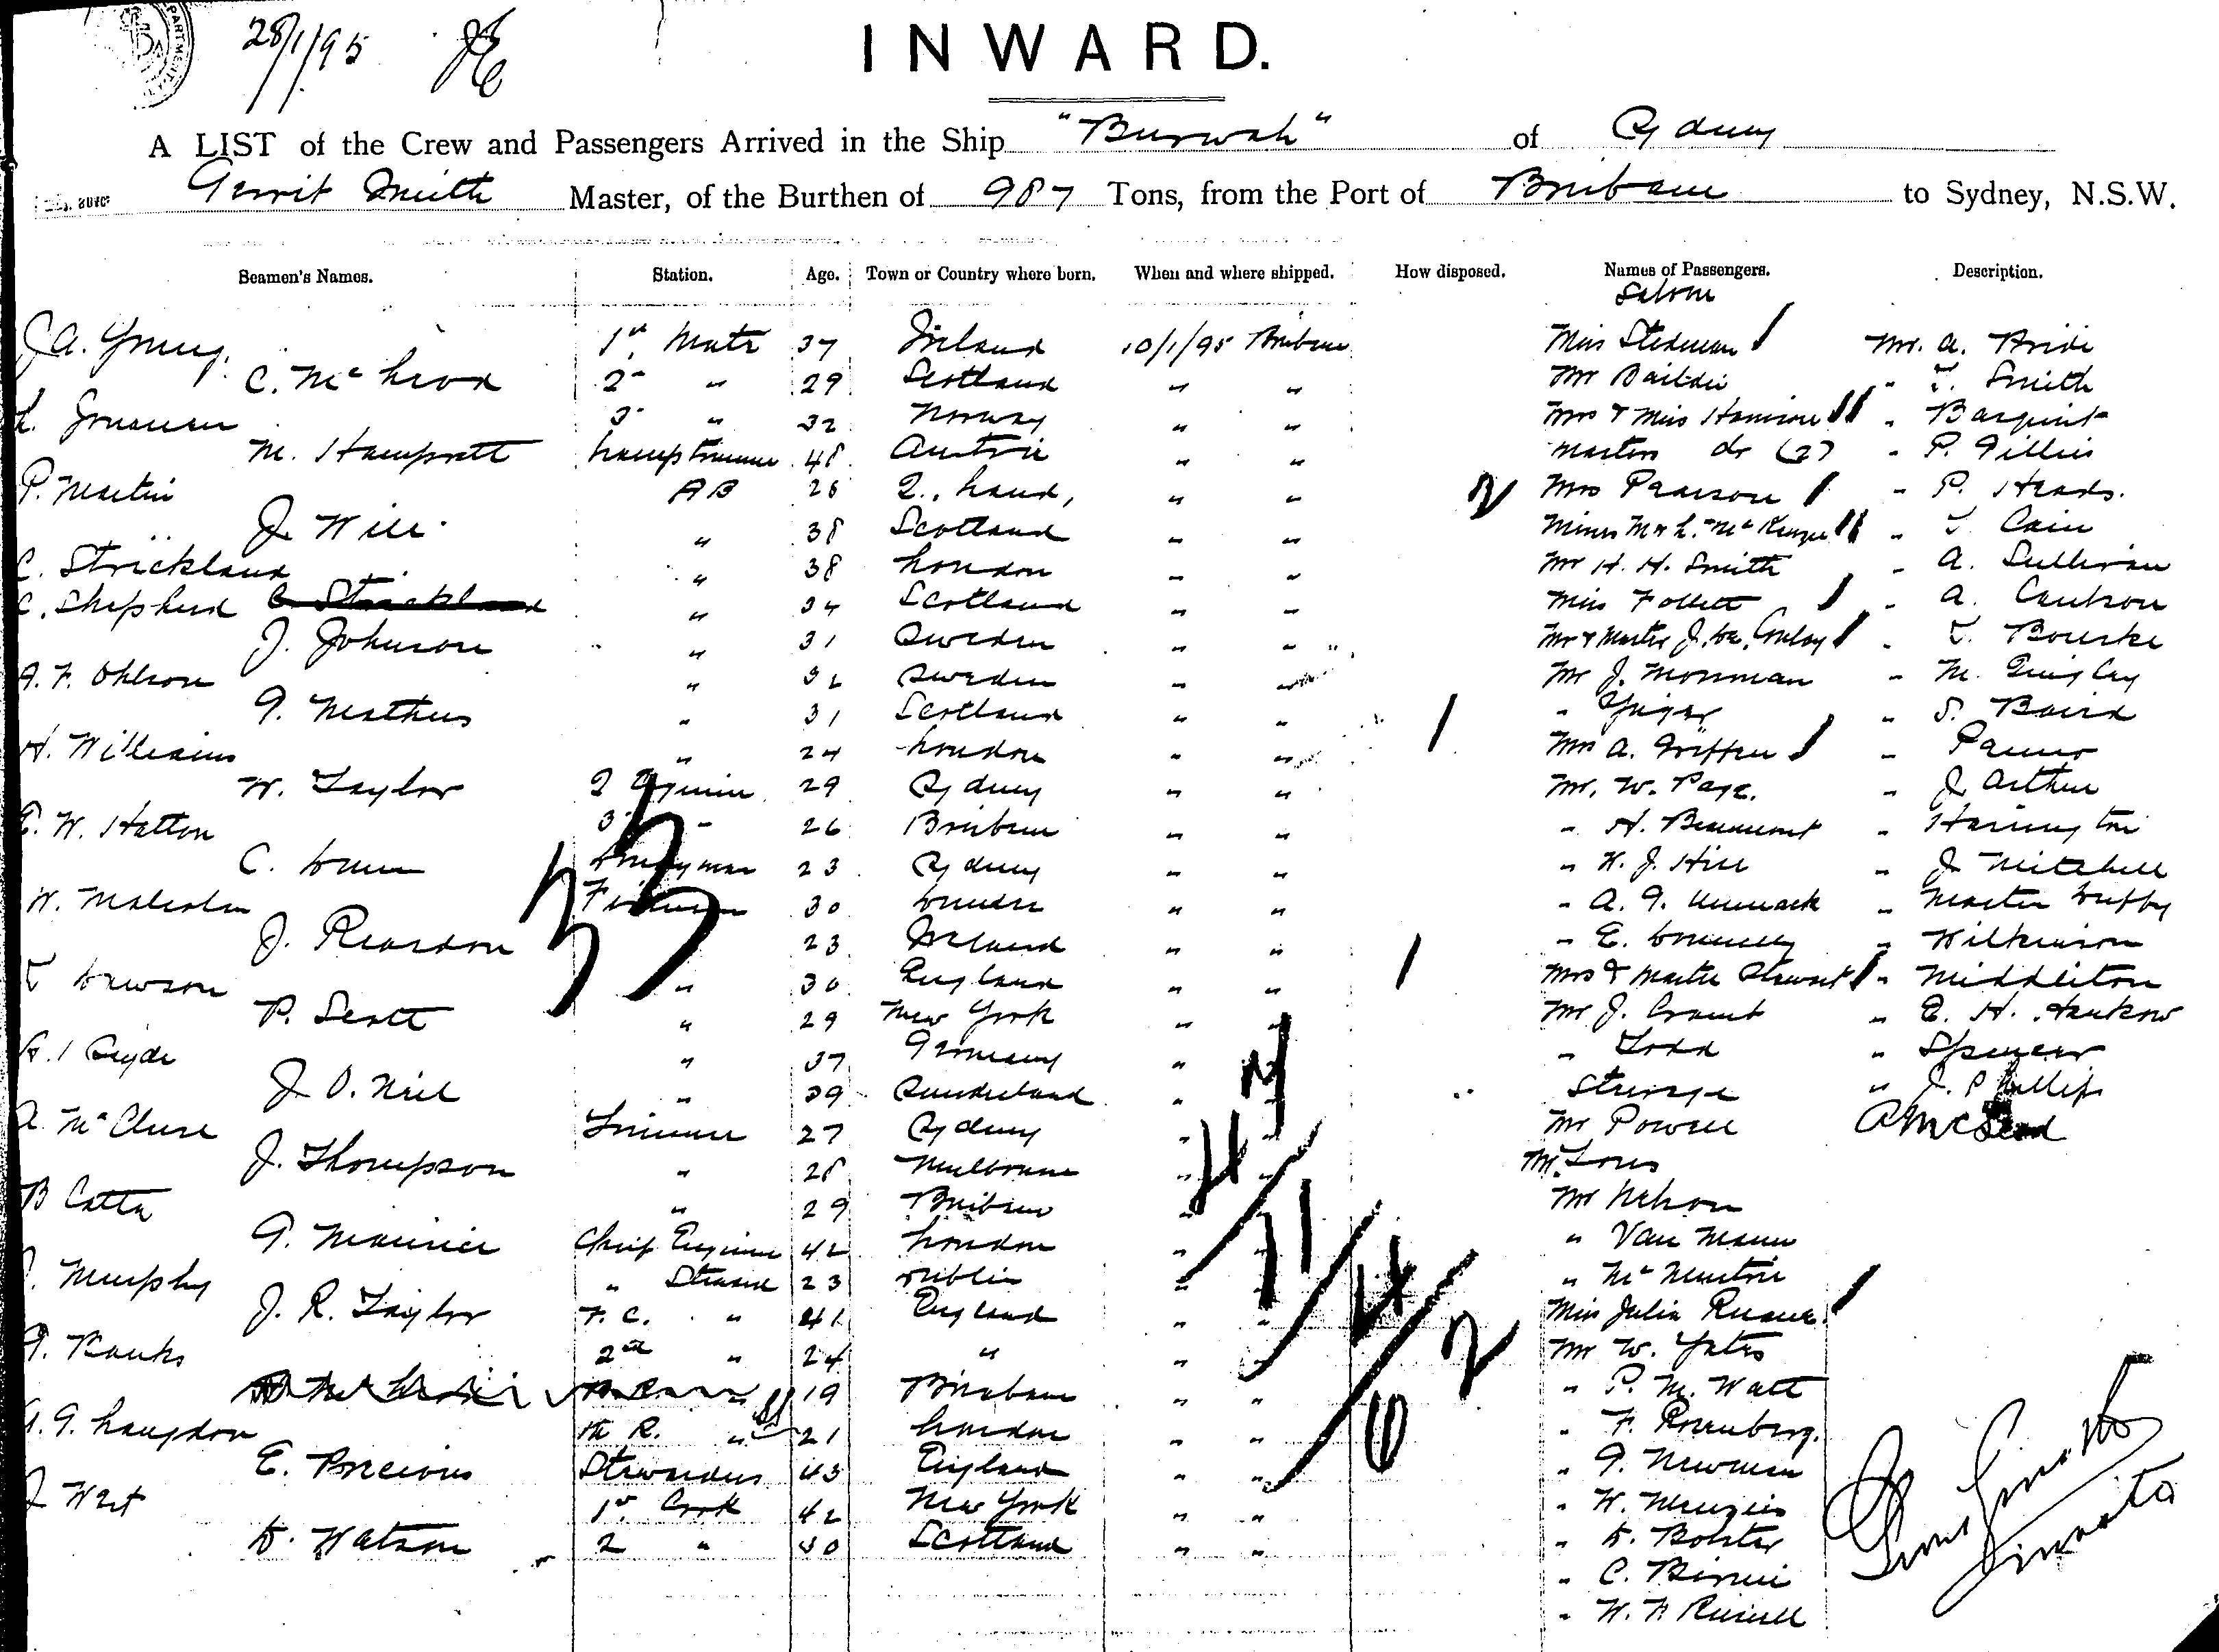 28/1/95
INWARD.
A LIST of the Crew and Passengers Arrived in the Ship "Burwah" of Sydney
Gerrit Smith Master, of the Burthen of 987 Tons, from the Port of Brisbane to Sydney, N.S.W.
Seamen's Names. Station. Age. Town or Country where born. When and where shipped. How disposed. Names of Passengers. Description.
Saloon
J. A. Young 1st Mate 37 Ireland 10/1/95 Brisbane Miss Stedman Mr. A. Bride
C. McLeod 2nd " 29 Scotland " " Mr " T. Smith
3rd " 32 Norway " " Mrs & Miss Harrison "
M. Lamptrimmer 48 Austria " " Masters do (2) " P. Gillies
P. Martin AB 28 " " Mrs Pearson " P. Heads.
J. Will " 38 Scotland " " Misses M & L. McKenzie " T. Cain
C. Strickland " 38 London " " Mr H. H. Smith " A. Sullivan
C. Shepherd C. Strickland " 34 Scotland " " Miss Follett " A.
J. Johnson " 31 Sweden " " Mr & Master J. " T. Bourke
A. F. Ohlson " 32 Sweden " " Mr J. Morsman " M. Quigley
G. Mathers " 31 Scotland " " " " S. Baird
H. Williams " 24 London " " Mrs A. Griffen "
W. Taylor 2 Engineer 29 Sydney " " Mr. W. Page. " J. Arthur
E. W. Hatton 3 " 26 Brisbane " " " H. Beaumont " Harington
C. Dunn Donkeyman 23 Sydney " " " H. J. Hill " J. Mitchell
W. Malcolm Fireman 30 Dundee " " " A. G. " Master Duffy
J. Reardon 23 Ireland " " " E. Connelly " Wilkinson
T. Dawson " 30 England " " Mrs & Master Stewart " Middleton
P. Scott " 29 New York " " Mr J. Cramb " E. H.
" 37 Germany " " Todd " Spencer
J. O. Neil " 39 Sunderland " " " J. Phillips
A. McClure Trimmer 27 Sydney " " Mr Powell A McLeod
J. Thompson " 28 Melbourne " " Mr.
B " 29 Brisbane " " Mr Nelson
G. Chief Engineer 42 London " " " Van Mann
Murphy " Steward 23 Dublin " " "
J. R. Taylor F. C. " 41 England " " Miss Julia
G. Banks 2nd " 24 " " " Mr W. Yates
19 Brisbane " " " P. M. Watt
A. G. Langdon " 21 London " " " F. Rosenberg.
E. Precious Stewardess 43 England " " " G. Newman
J. West 1st Cook 42 New York " " " W. Menzies
D. Watson 2 " 30 Scotland " " " D. Bolster
" C. Birnie
" W. F. Russell